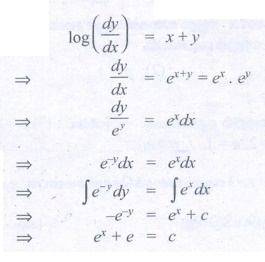 log(dy/dx) = x + y
⇒ dy/dx = e^{x+y} = e^x . e^y
⇒ dy/e^y = e^x dx
⇒ e^{-y}dx = e^x dx
⇒ ∫e^{-y} dy = ∫e^x dx
⇒ -e^{-y} = e^x + c
⇒ e^x + e = c